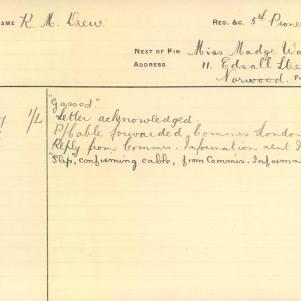 NAME K. M. Drew. REG. &C. 5th Pioneer
NEXT OF KIN Miss Madge
ADDRESS 11. Edsall Stre
Norwood.
"Gassed"
1/L Letter acknowledged.
P/Cable forwarded, Commis London
Reply from Commis. Information sent
"Slip, confirming cable, from Commis. Informa